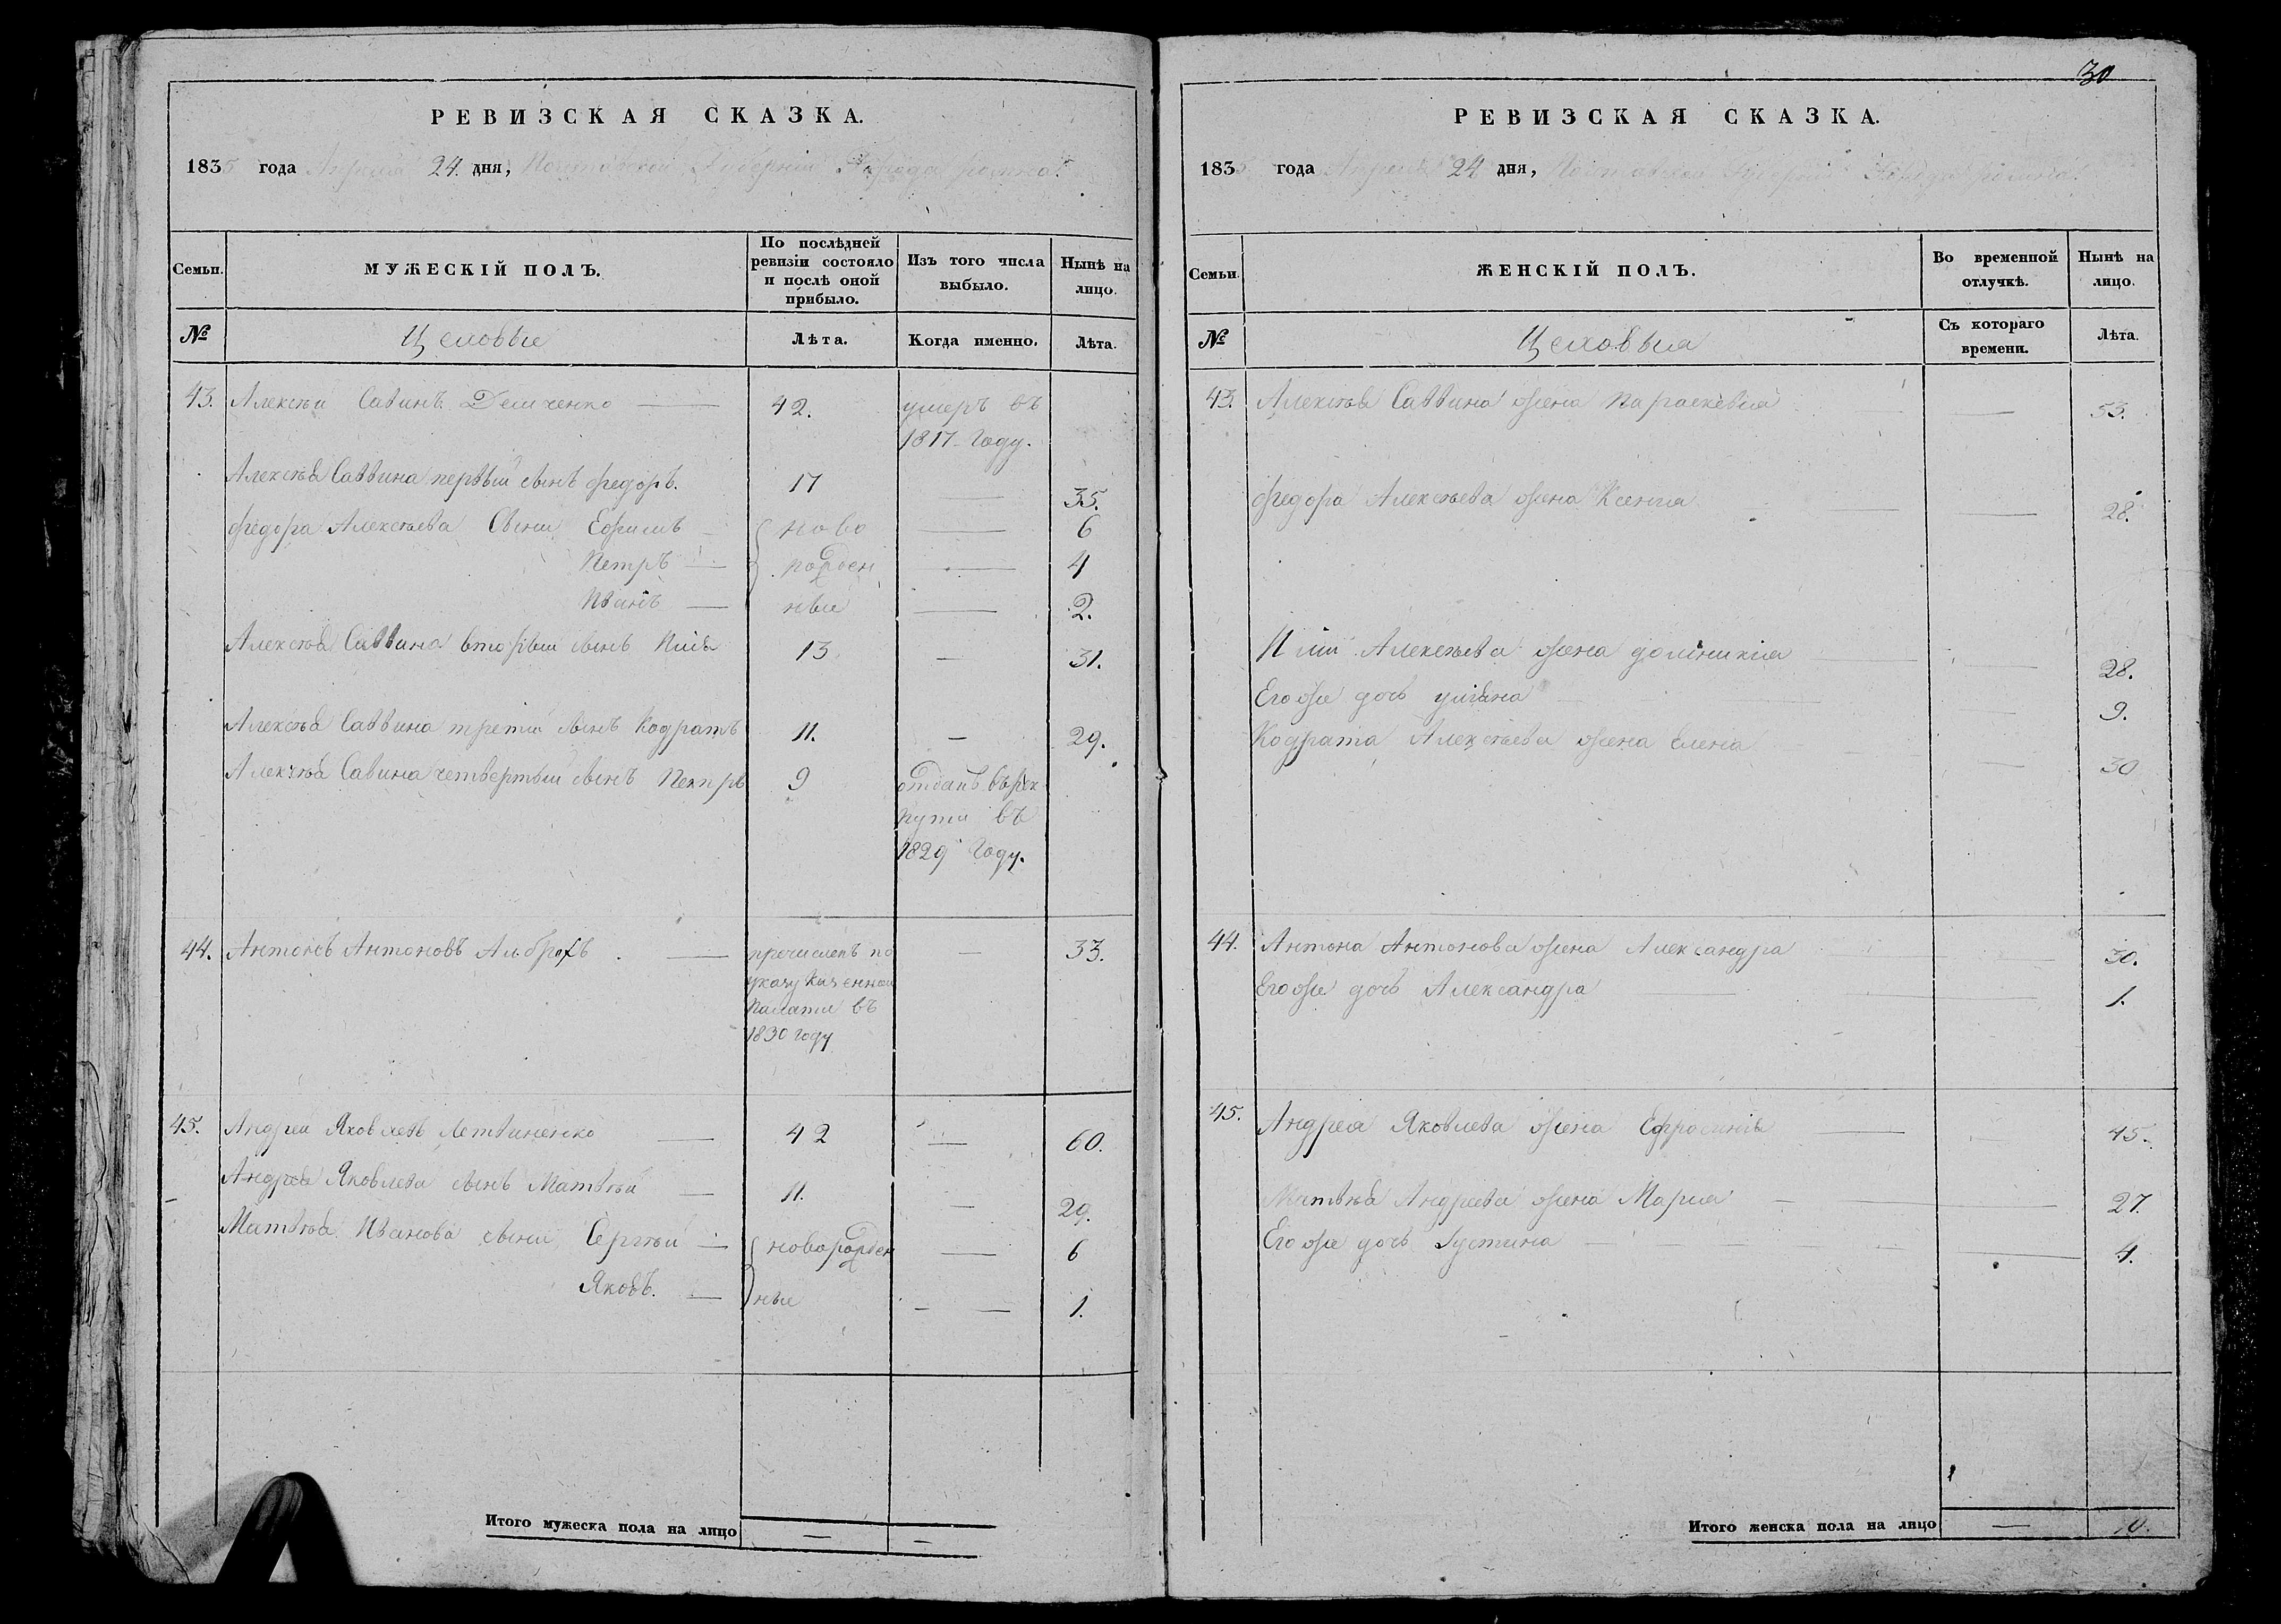 РЕВИЗСКАЯ СКАЗКА.
1835 года Апреля 24 дня, Полтавской Губернии Города ромна.
Семьи. МУЖЕСКІЙ ПОЛЪ. По послѣдней ревизіи состояло и послѣ оной прибыло. Изъ того числа выбыло. Нынѣ на лицо.
№ Цеховые Лѣта. Когда именно. Лѣта.
43. Алексѣй Савинъ Демченко 42. умеръ въ
1817 Году.
Алексѣя Саввина первый сынъ Федоръ. 17 35.
Федора Алексѣева Сыни Ефримъ ново 6
Петръ рожден 4
Иванъ ные 2.
Алексѣя Саввина вторый сынъ 13 31.
Алексѣя Саввина третій сынъ Кодратъ 11. 29.
Алексѣя Савина четвертый сынъ Петръ 9 отданъ въ рек
рути въ
1829 Году.
44. Антонъ Антоновъ 33.
причисленъ по
указу Казенной
Палати въ
1830 году
45. Андрей Яковлевъ Летвиненко 42 60.
Андрея Яковлева сынъ Матвѣй 11. 29.
Матвѣя Иванова сыни Сергѣй новорожден 6
Яковъ. ные 1.
Итого мужеска пола на лицо
30
РЕВИЗСКАЯ СКАЗКА.
1835 года Апреля 24 дня, Полтавской Губерніи Города ромна.
Семьи. ЖЕНСКІЙ ПОЛЪ. Во временной отлучкѣ. Нынѣ на лицо.
№ Цеховыя Съ котораго времени. Лѣта.
43. Алексѣя Саввина жена Параскевія 53.
Федора Алексѣева жена Ксенія 28.
Алексѣева жена домникія 28.
Егоже дочь уліяна 9.
Кодрата Алексѣева жена Елена 30
44. Антона Антонова жена Александра 30.
Егоже дочь Александра 1.
45. Андрея Яковлева жена Ефросинія 45.
Матвѣя Андреева жена Марія 27.
Егоже дочь Іустина 4.
Итого женска пола на лицо 10.